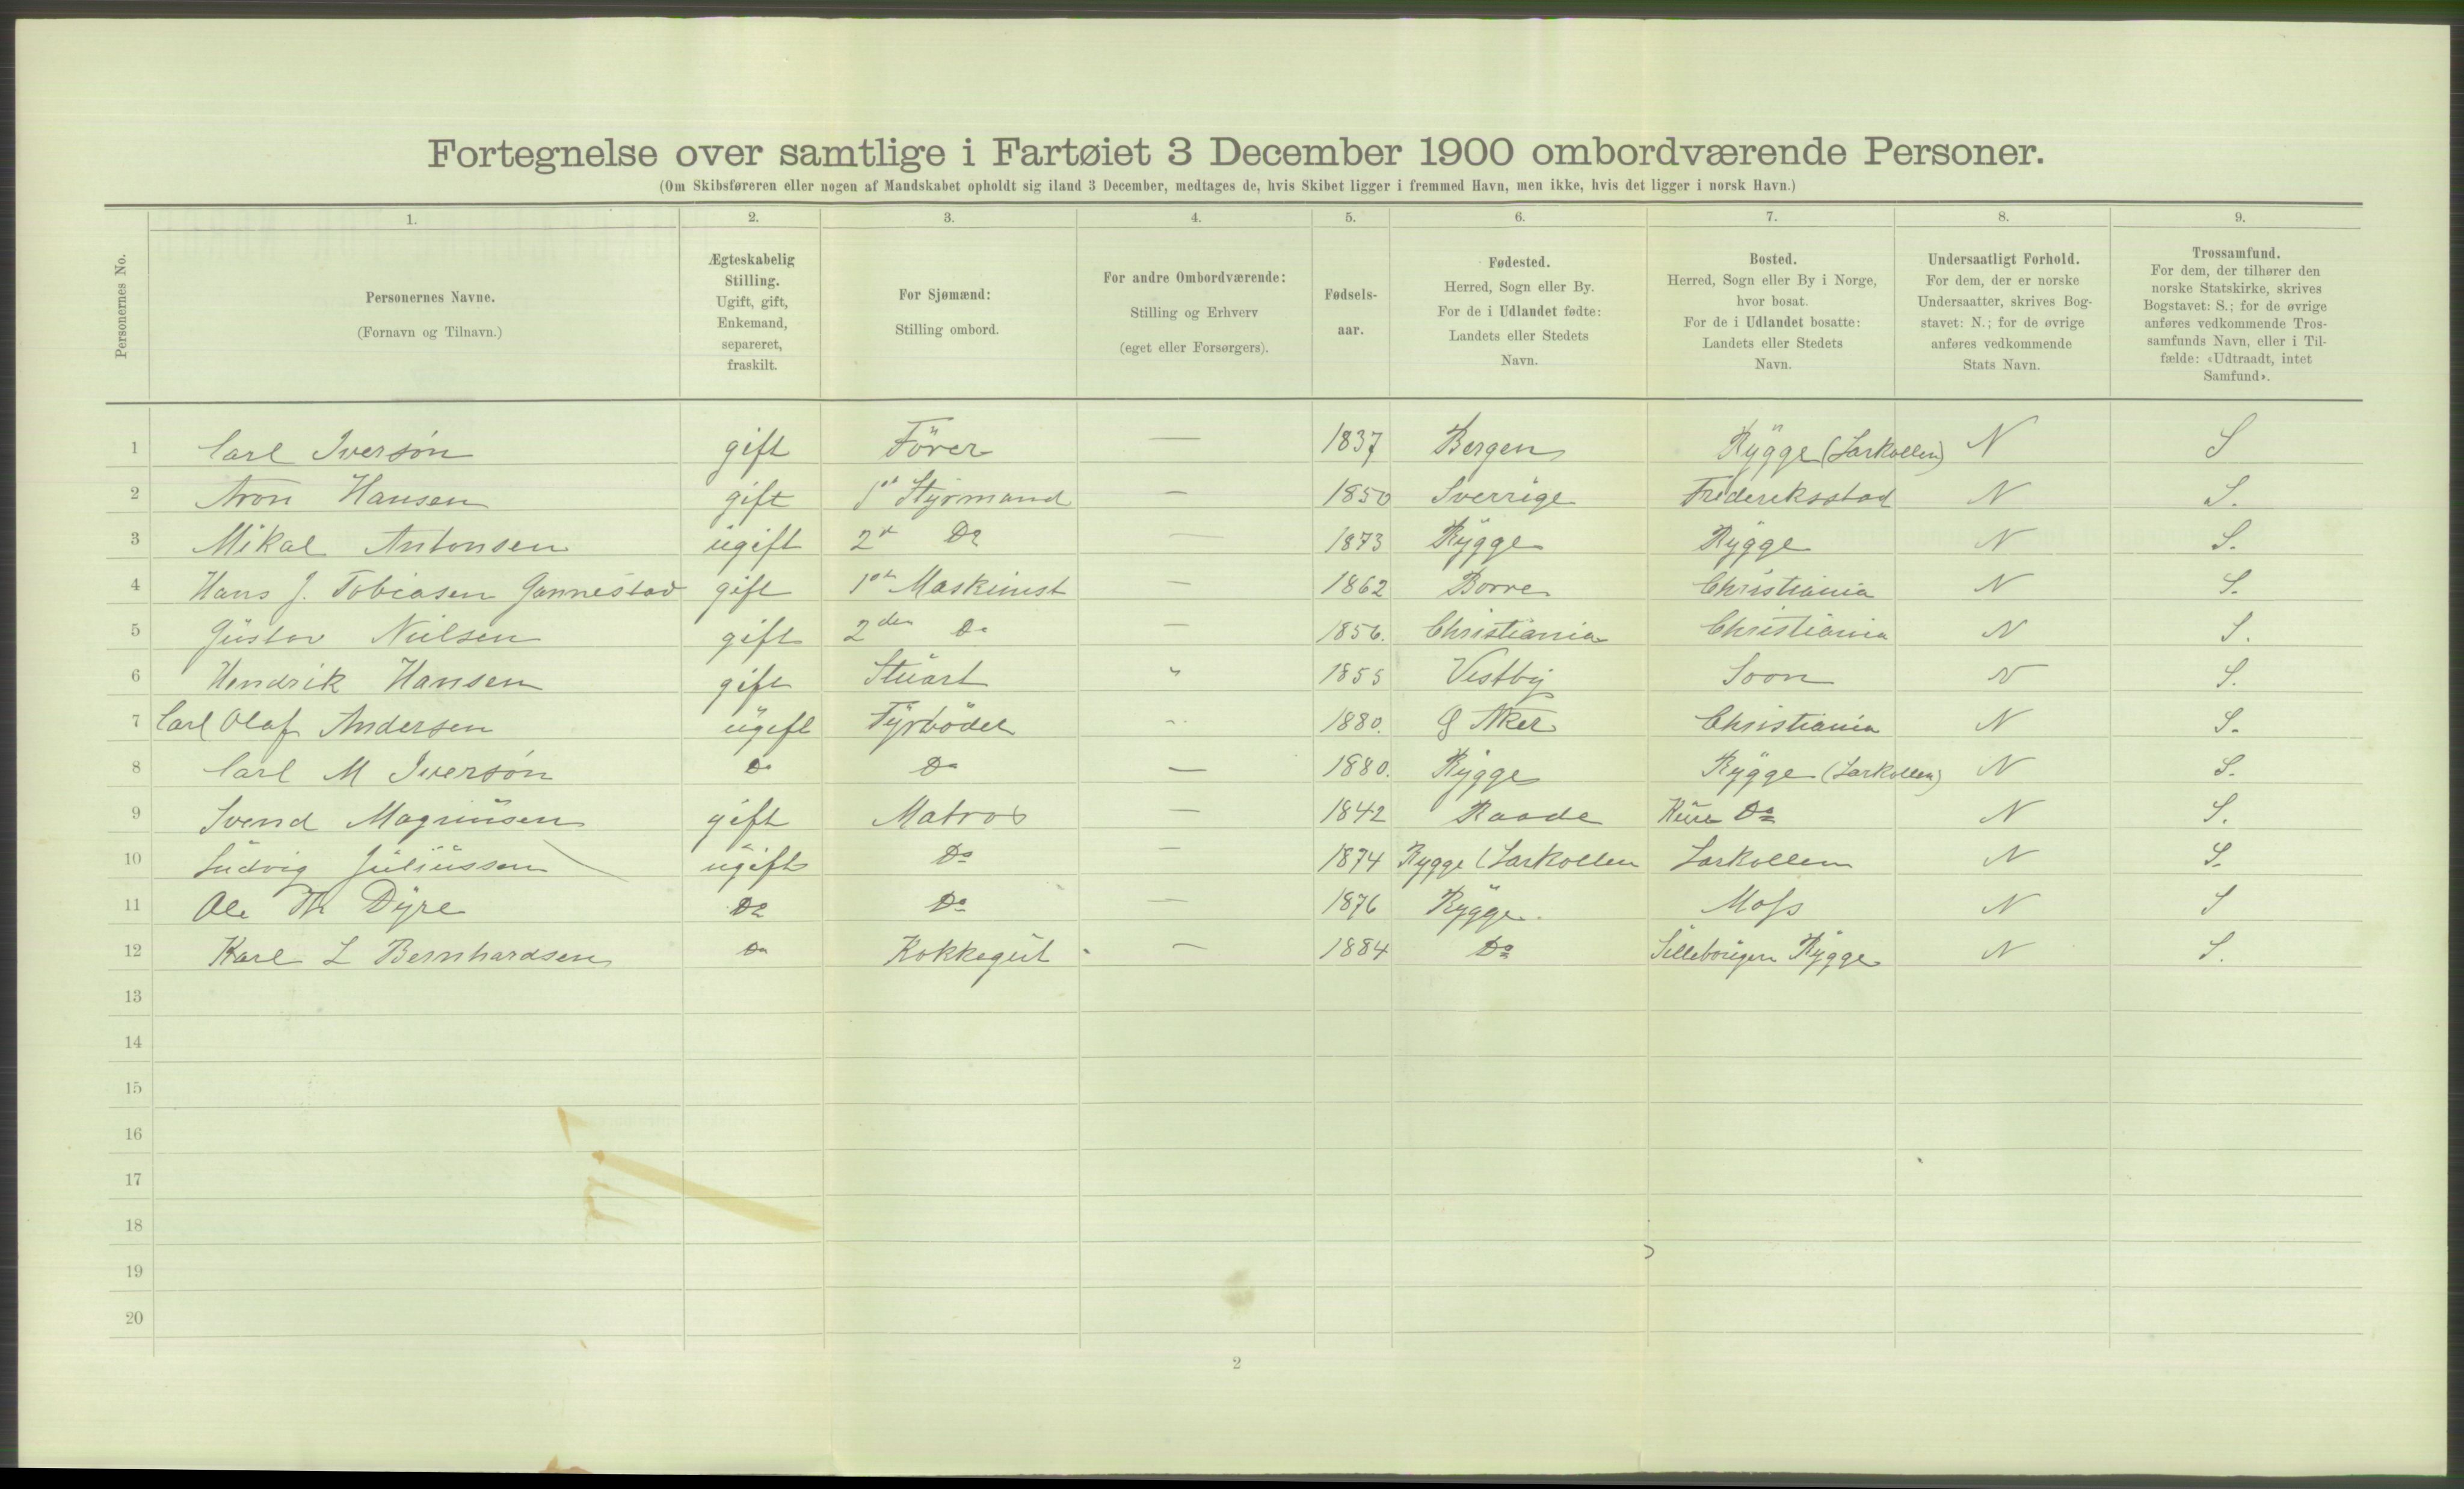 Fortegnelse over samtlige i Fartøiet 3 December 1900 ombordværende Personer.
(Om Skibsføreren eller nogen af Mandskabet opholdt sig iland 3 December, medtages de, hvis Skibet ligger i fremmed Havn, men ikke, hvis det ligger i norsk Havn.)
Personernes No.
1.
Personernes Navne.
(Fornavn og Tilnavn.)
2.
Ægteskabelig
Stilling.
Ugift, gift,
Enkemand,
separeret,
fraskilt.
3.
For Sjømænd:
Stilling ombord.
4.
For andre Ombordværende:
Stilling og Erhverv
(eget eller Forsørgers).
5.
Fødsels-
aar.
6.
Fødested.
Herred, Sogn eller By.
For de i Udlandet fødte:
Landets eller Stedets
Navn.
7.
Bosted.
Herred, Sogn eller By i Norge,
hvor bosat.
For de i Udlandet bosatte:
Landets eller Stedets
Navn.
8.
Undersaatligt Forhold.
For dem, der er norske
Undersaatter, skrives Bog-
stavet: N.; for de øvrige
anføres vedkommende
Stats Navn.
9.
Trossamfund.
For dem, der tilhører den
norske Statskirke, skrives
Bogstavet: S.; for de øvrige
anføres vedkommende Tros-
samfunds Navn, eller i Til-
fælde: «Udtraadt, intet
Samfund».
1 Carl Iversön gift Förer — 1837 Bergen Rygge (Larkollen) N S
2 Aron Hansen gift 1st Styrmand — 1850 Sverrige Frederiksstad N S.
3 Mikal Antonsen ugift 2d Do — 1873 Rygge Rygge N S.
4 Hans J. Tobiasen Gannestad gift 1ste Maskinist — 1862 Borre Christiania N S.
5 Gustav Nielsen gift 2den Do — 1856. Christiania Christiania N S.
6 Hendrik Hansen gift Stuart " 1855 Vestby Soon N S.
7 Carl Olaf Andersen ugift Fyrböder " 1880. Aker Christiania N S.
8 Carl M Iversön Do Do — 1880. Rygge Rygge (Larkollen) N S.
9 Svend Magnusen gift Matros — 1842 Raade Do N S.
10 Ludvig Juliussen ugift Do — 1874 Rygge (Larkollen Larkollen N S.
11 Ole Th Dyre Do Do — 1876 Rygge. Moss N S
12 Karl L Bernhardsen Do Kokkegut — 1884 Do Rygge N S.
13
14
15
16
17
18
19
20
2